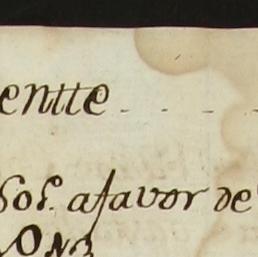 entte
Sos. afavor de